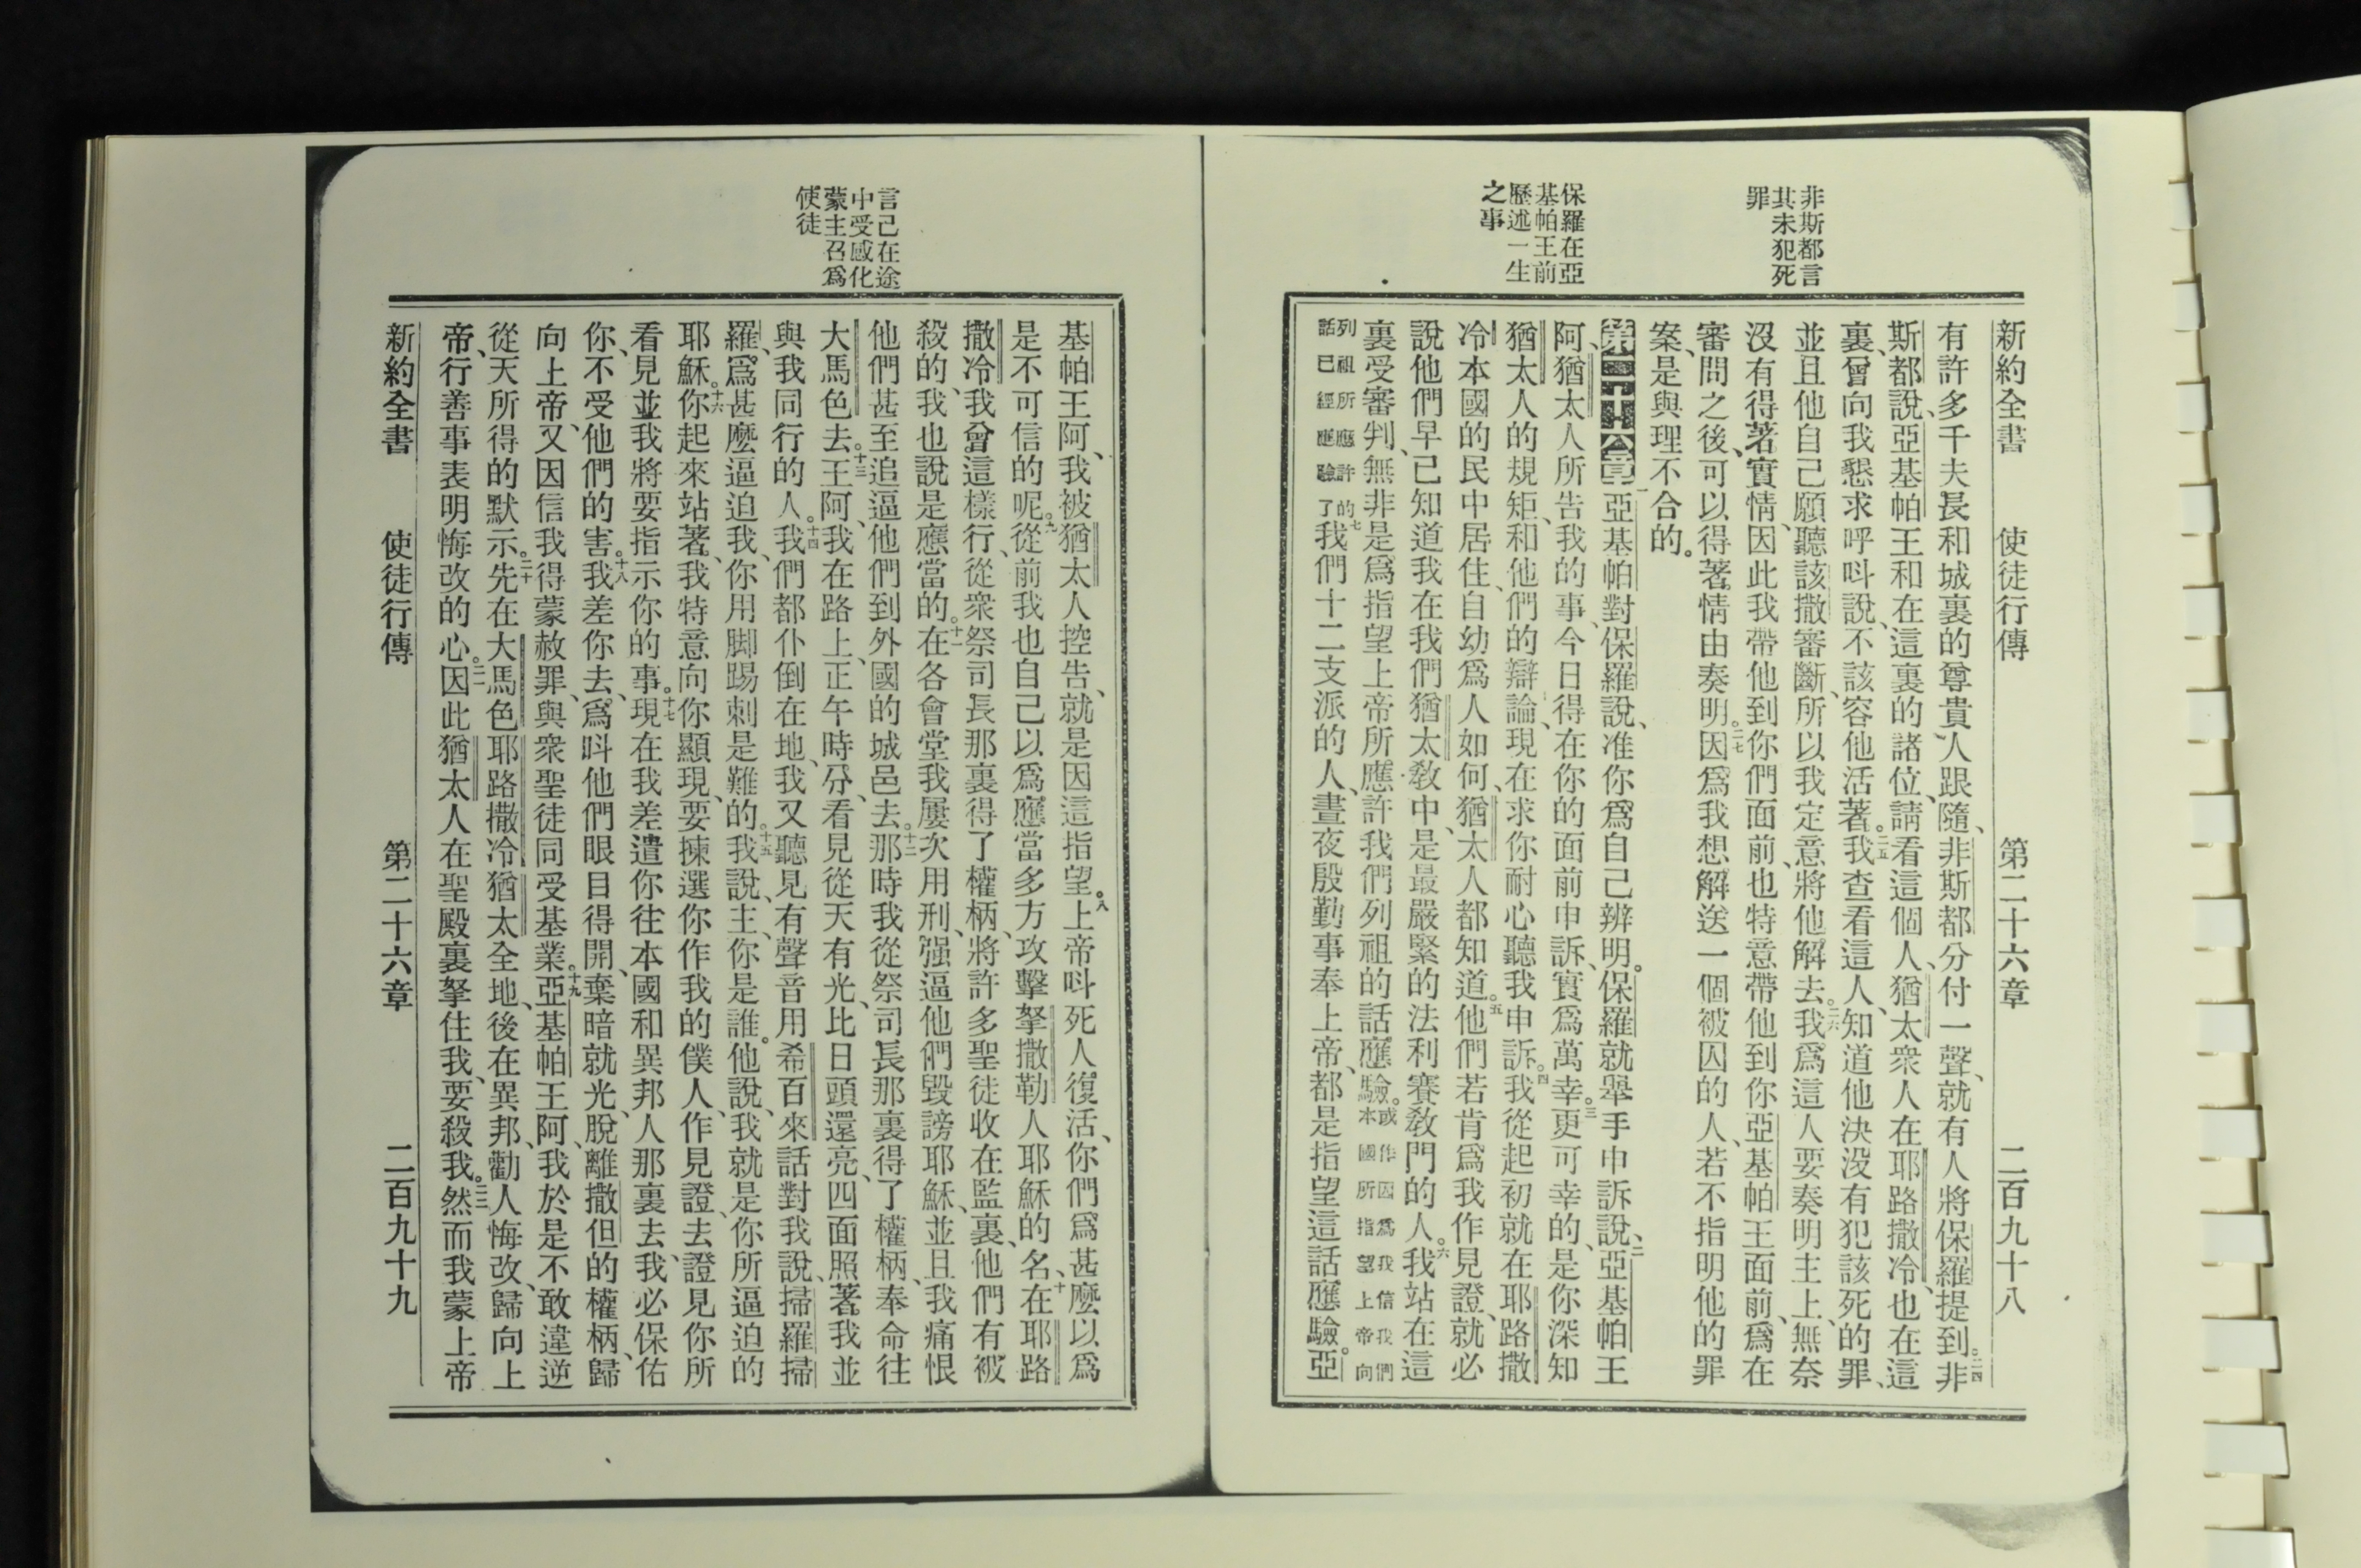 非斯都言
其未犯死
罪
保羅在亞
基帕王前
歷述一生
之事
新約全書 使徒行傳 第二十六章 二百九十八
有許多千夫長和城裏的尊貴人跟隨、非斯都分付一聲、就有人將保羅提到。二四非
斯都說、亞基帕王和在這裏的諸位、請看這個人、猶太衆人在耶路撒冷、也在這
裏、曾向我懇求呼呌說、不該容他活著。二五我查看這人、知道他決沒有犯該死的罪、
並且他自己願聽該撒審斷、所以我定意將他解去。二六我爲這人要奏明主上、無奈
沒有得著實情、因此我帶他到你們面前、也特意帶他到你亞基帕王面前、爲在
審問之後、可以得著情由奏明。二七因爲我想解送一個被囚的人、若不指明他的罪
案、是與理不合的。
第二十六章 一亞基帕對保羅說、准你爲自己辨明。保羅就舉手申訴說、二亞基帕王
阿、猶太人所告我的事、今日得在你的面前申訴、實爲萬幸。三更可幸的、是你深知
猶太人的規矩、和他們的辯論、現在求你耐心聽我申訴。四我從起初就在耶路撒
冷本國的民中居住、自幼爲人如何、猶太人都知道。五他們若肯爲我作見證、就必
說他們早已知道我在我們猶太敎中、是最嚴緊的法利賽敎門的人。六我站在這
裏受審判、無非是爲指望上帝所應許我們列祖的話應驗。或作因爲我信我們本國所指望上帝向
列祖所應許的話已經應驗了七我們十二支派的人、晝夜殷勤事奉上帝、都是指望這話應驗。亞
言己在途
中受感化
蒙主召爲
使徒
基帕王阿、我被猶太人控告、就是因這指望。八上帝呌死人復活、你們爲甚麼以爲
是不可信的呢。九從前我也自己以爲應當多方攻擊拏撒勒人耶穌的名、十在耶路
撒冷我曾這樣行、從衆祭司長那裏得了權柄、將許多聖徒收在監裏、他們有被
殺的、我也說是應當的。十一在各會堂我屢次用刑、强逼他們毀謗耶穌、並且我痛恨
他們甚至追逼他們到外國的城邑去。十二那時我從祭司長那裏得了權柄、奉命往
大馬色去。十三王阿、我在路上、正午時分、看見從天有光、比日頭還亮、四面照著我並
與我同行的人。十四我們都仆倒在地、我又聽見有聲音用希百來話對我說、掃羅掃
羅、爲甚麽逼迫我、你用脚踢刺是難的。十五我說、主、你是誰。他說、我就是你所逼迫的
耶穌。十六你起來站著、我特意向你顯現、要揀選你作我的僕人、作見證、去證見你所
看見並我將要指示你的事。十七現在我差遣你往本國和異邦人那裏去、我必保佑
你、不受他們的害。十八我差你去、爲呌他們眼目得開、棄暗就光、脫離撒但的權柄、歸
向上帝、又因信我得蒙赦罪、與衆聖徒同受基業。十九亞基帕王阿、我於是不敢違逆
從天所得的默示。二十先在大馬色耶路撒冷猶太全地、後在異邦、勸人悔改、歸向上
帝、行善事表明悔改的心。二一因此猶太人在聖殿裏拏住我、要殺我。二二然而我蒙上帝
新約全書 使徒行傳 第二十六章 二百九十九